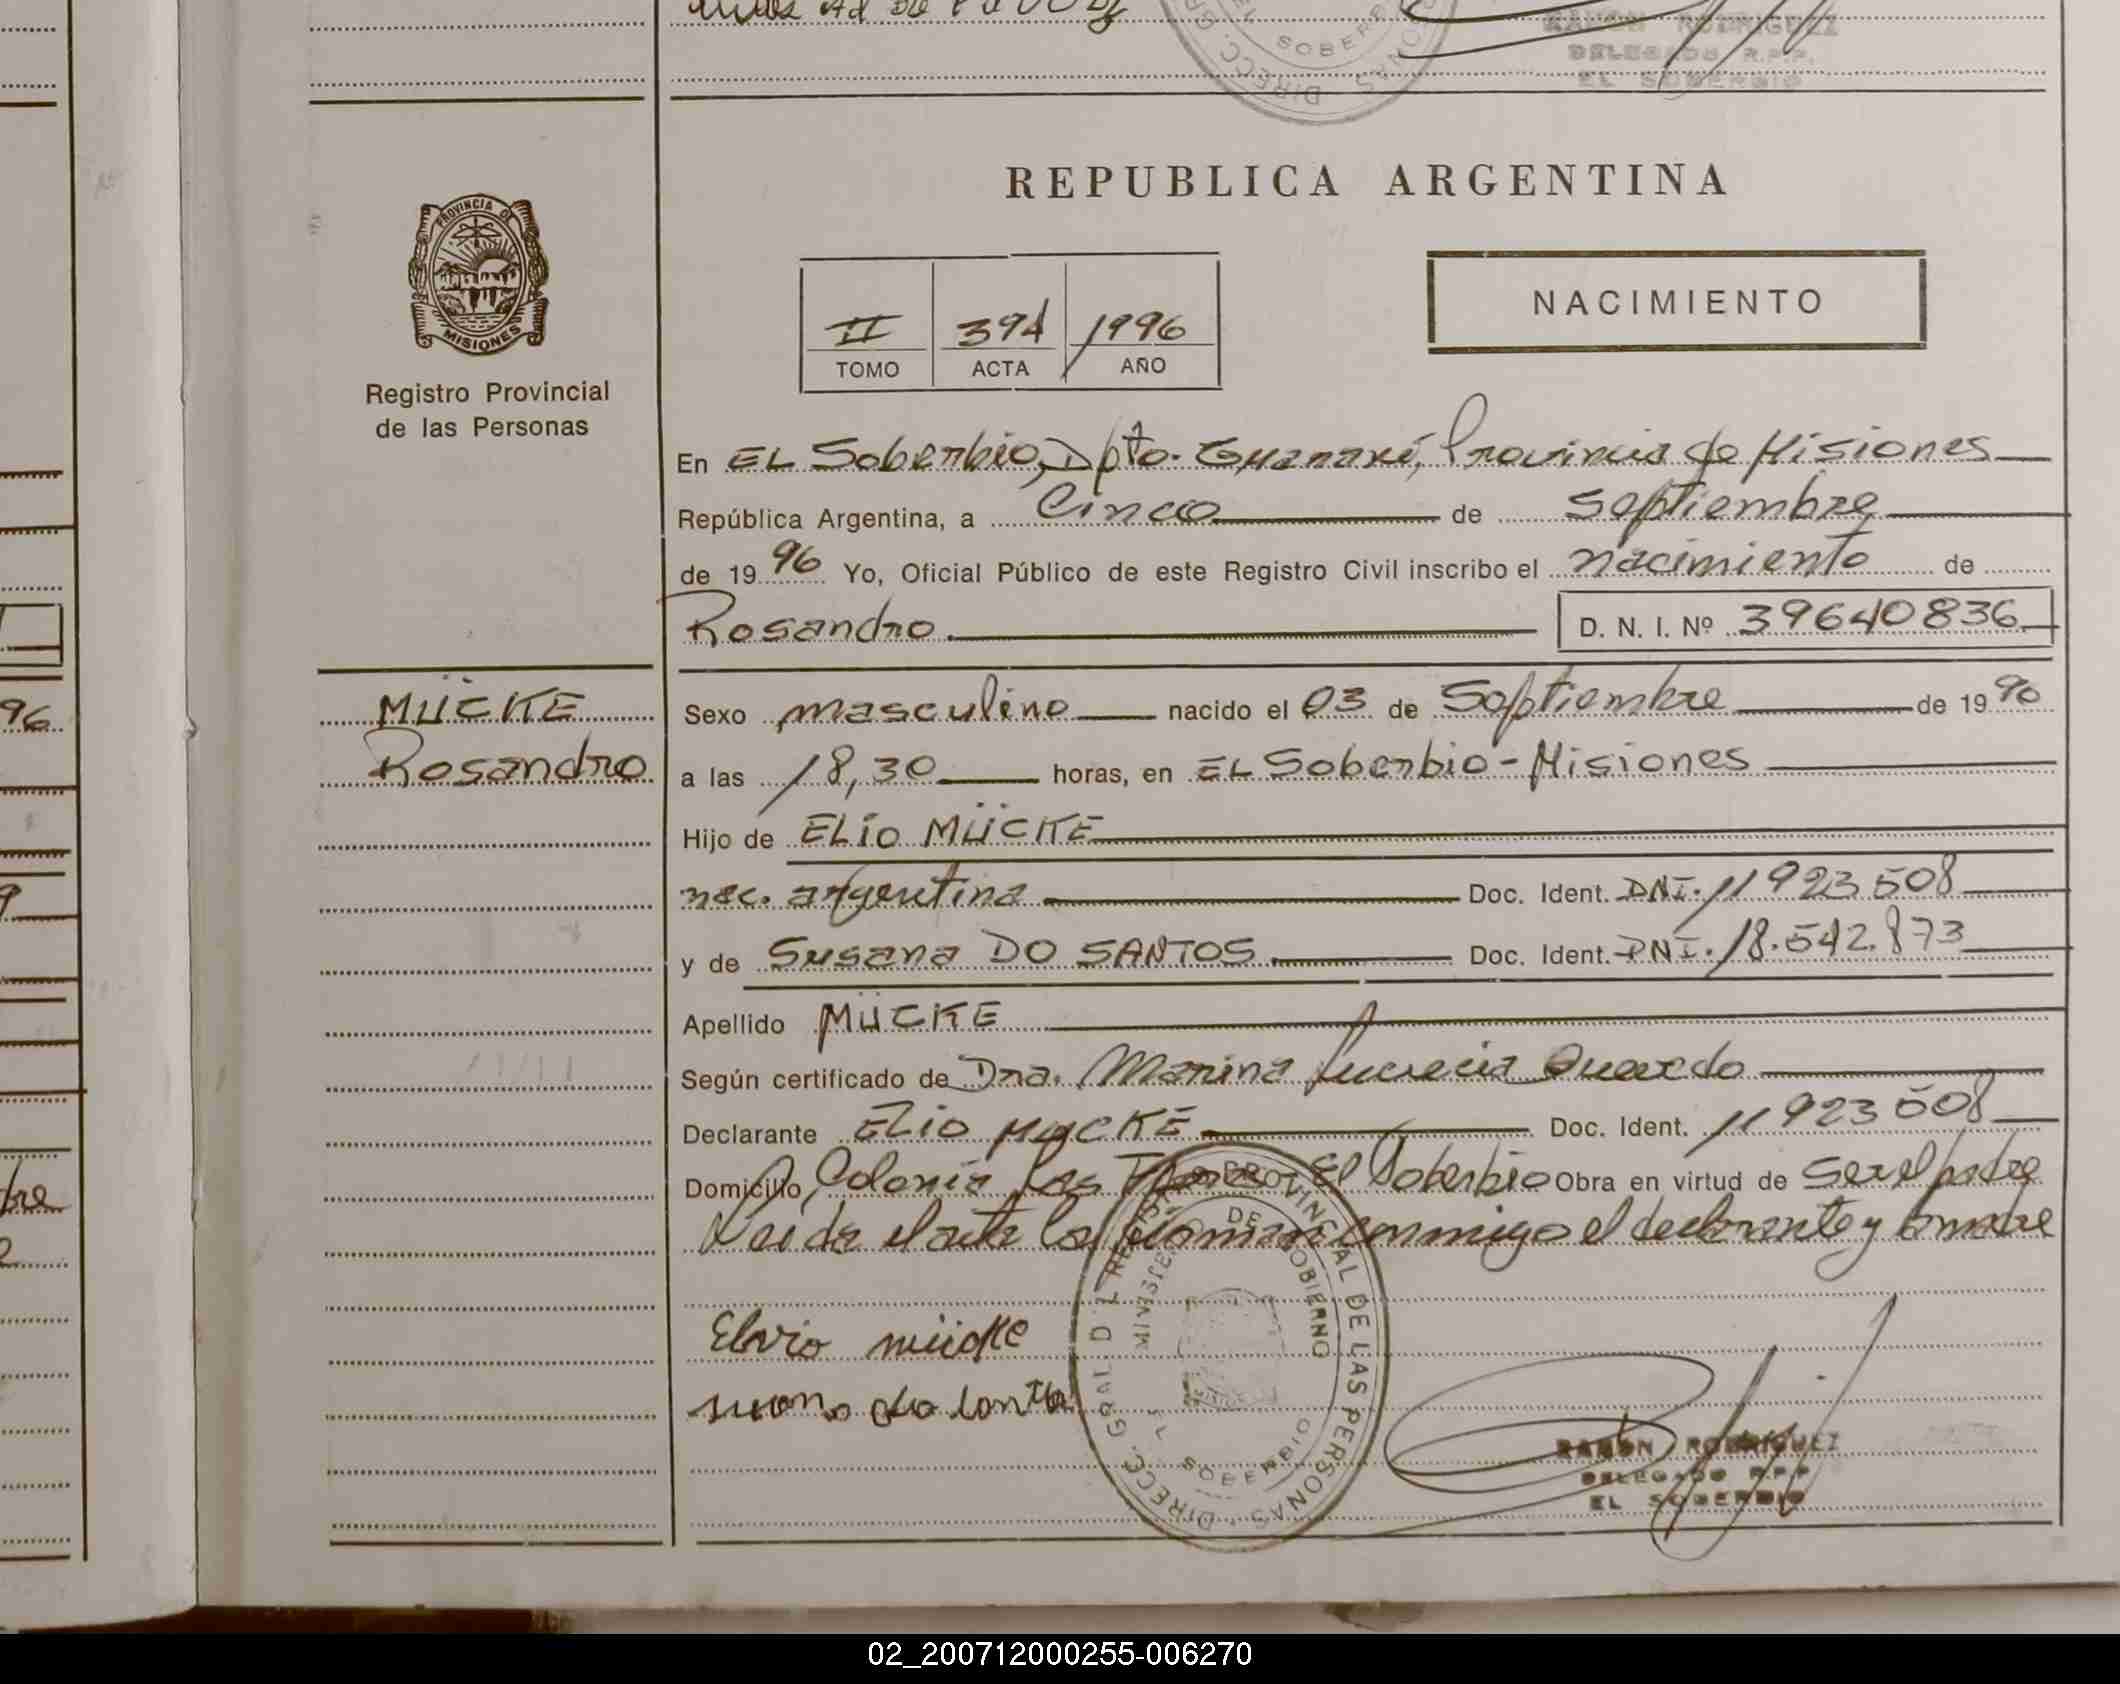 SOBERBIO
DIRECC. GRAL
RAMON RODRIGUEZ
DELEGADO R.P.P.
EL SOBERBIO
PROVINCIA DE
MISIONES
Registro Provincial
de las Personas
REPUBLICA ARGENTINA
II 394 1996
TOMO ACTA AÑO
NACIMIENTO
En EL Soberbio, Dpto. Guaraní, Provincia de Misiones
República Argentina, a Cinco de Septiembre
de 19 96 Yo, Oficial Público de este Registro Civil inscribo el nacimiento de
Rosandro. D. N. I. Nº 39640836
MÜCKE
Rosandro
Sexo masculino nacido el 03 de Septiembre de 19 96
a las 18,30 horas, en EL Soberbio - Misiones
Hijo de ELIO MÜCKE
nac. argentina Doc. Ident. DNI. 11923508
y de Susana DO SANTOS. Doc. Ident. DNI. 18.542.873
Apellido MÜCKE
Según certificado de Dra. Marina Lucrecia
Declarante ELIO MÜCKE Doc. Ident. 11923508
Domicilio Colonia Las El Soberbio Obra en virtud de ser el padre
Leida el acta la firman conmigo el declarante y la madre
Elvio mücke
DIRECC. GRAL DEL REGISTRO PROVINCIAL DE LAS PERSONAS
MINISTERIO DE GOBIERNO
EL SOBERBIO
RAMON RODRIGUEZ
DELEGADO R.P.P
EL SOBERBIO
96
02_200712000255-006270